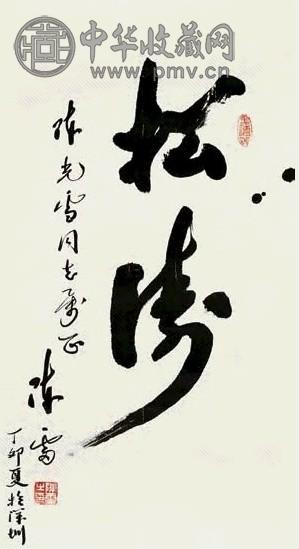 中华收藏网
www.pmv.cn
松涛
陈光雪同志属正
陈雷
丁卯夏於深圳